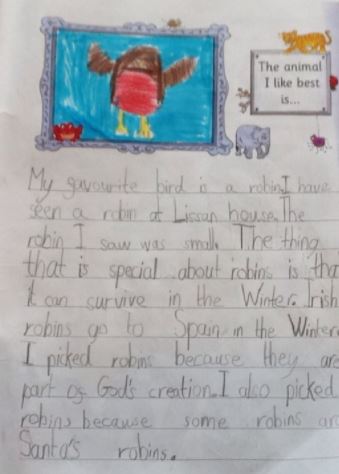 The animal
I like best
is...
My gavourite bird is a robin. I have
seen a robin at Lissan house. The
robin I saw was small. The thing
that is special about robins is tha
it can survive in the Winter. Irish
robins go to Spain in the Winter
I picked robins because they are
part og God's creation. I also picked
robins because some robins are
Santa's robins.